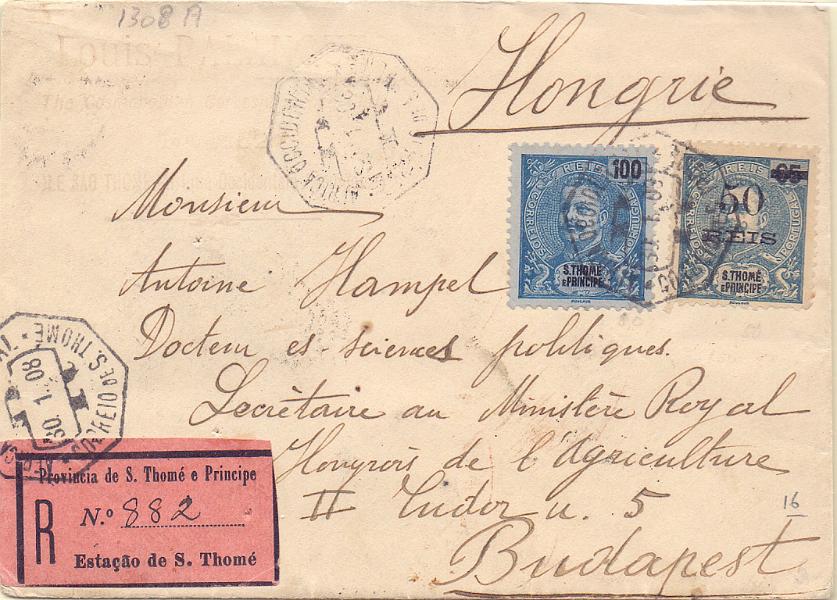 1308 A
Louis
Hongrie
AFRICA OCCIDENTAL
CORREIOS REIS 100 PORTUGAL
S. THOMÉ
E PRINCIPE
CORREIOS REIS 65 PORTUGAL
50
REIS
S. THOMÉ
E PRINCIPE
Monsieur
Antoine Hampel
Docteur es sciences politiques.
Secrétaire au Ministère Royal
Hongrois de l'Agriculture
II Tudor u. 5
16
Budapest
CORREIO DE S. THOMÉ
30. 1. 08
Provincia de S. Thomé e Principe
R N.º 882
Estação de S. Thomé